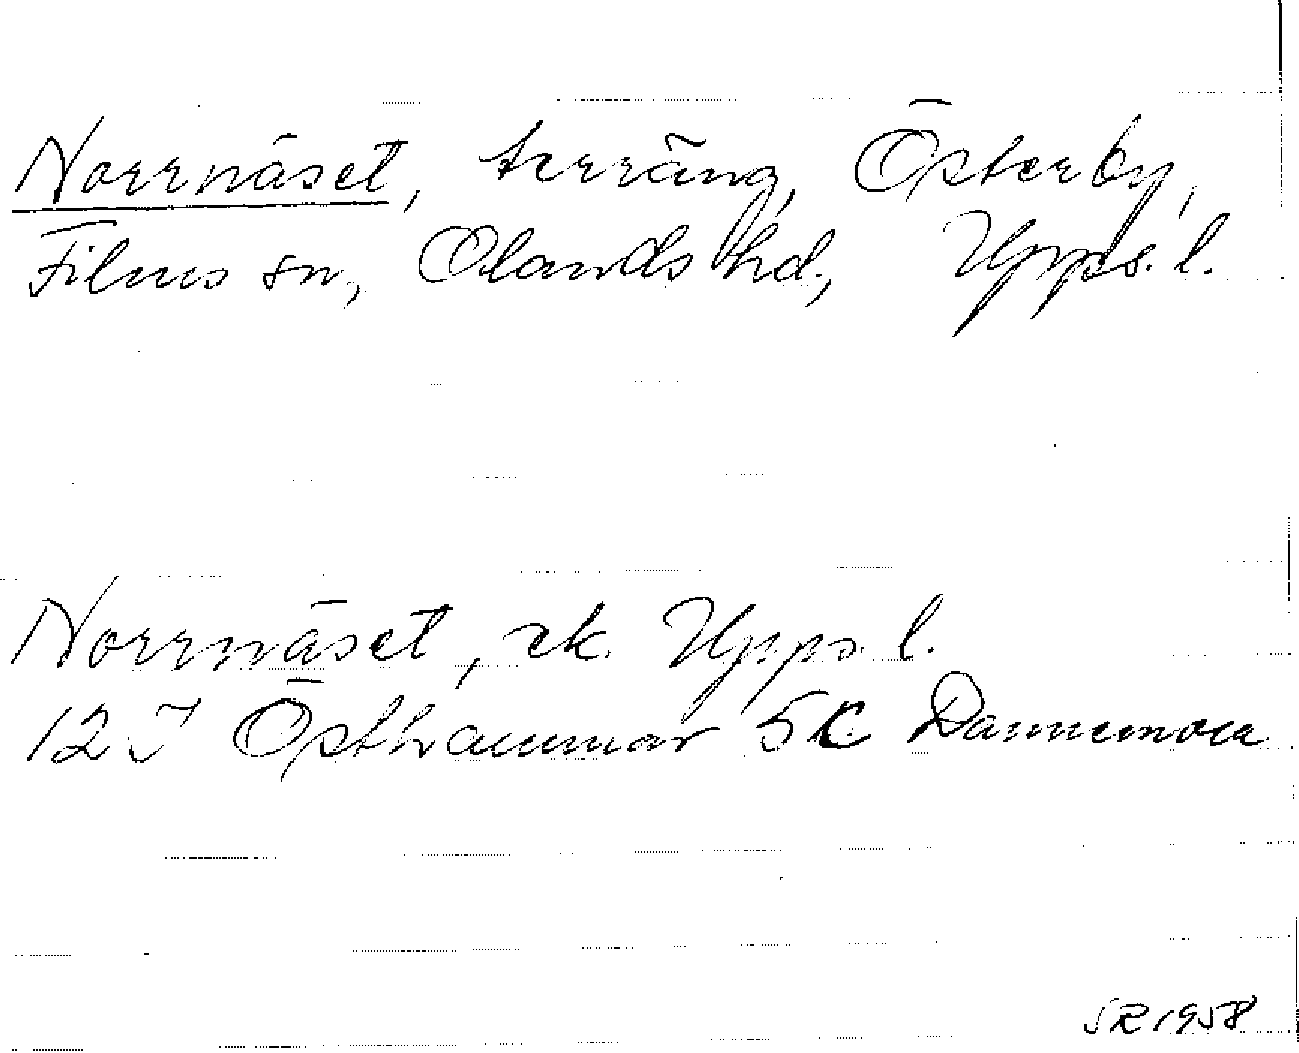 Norrnäset, terräng, Österby,
Films sn, Olands hd., Upps. l.
Norrnäset, ek. Upps. l.
12 I Östhammar 5 C Dannemora
SR 1958